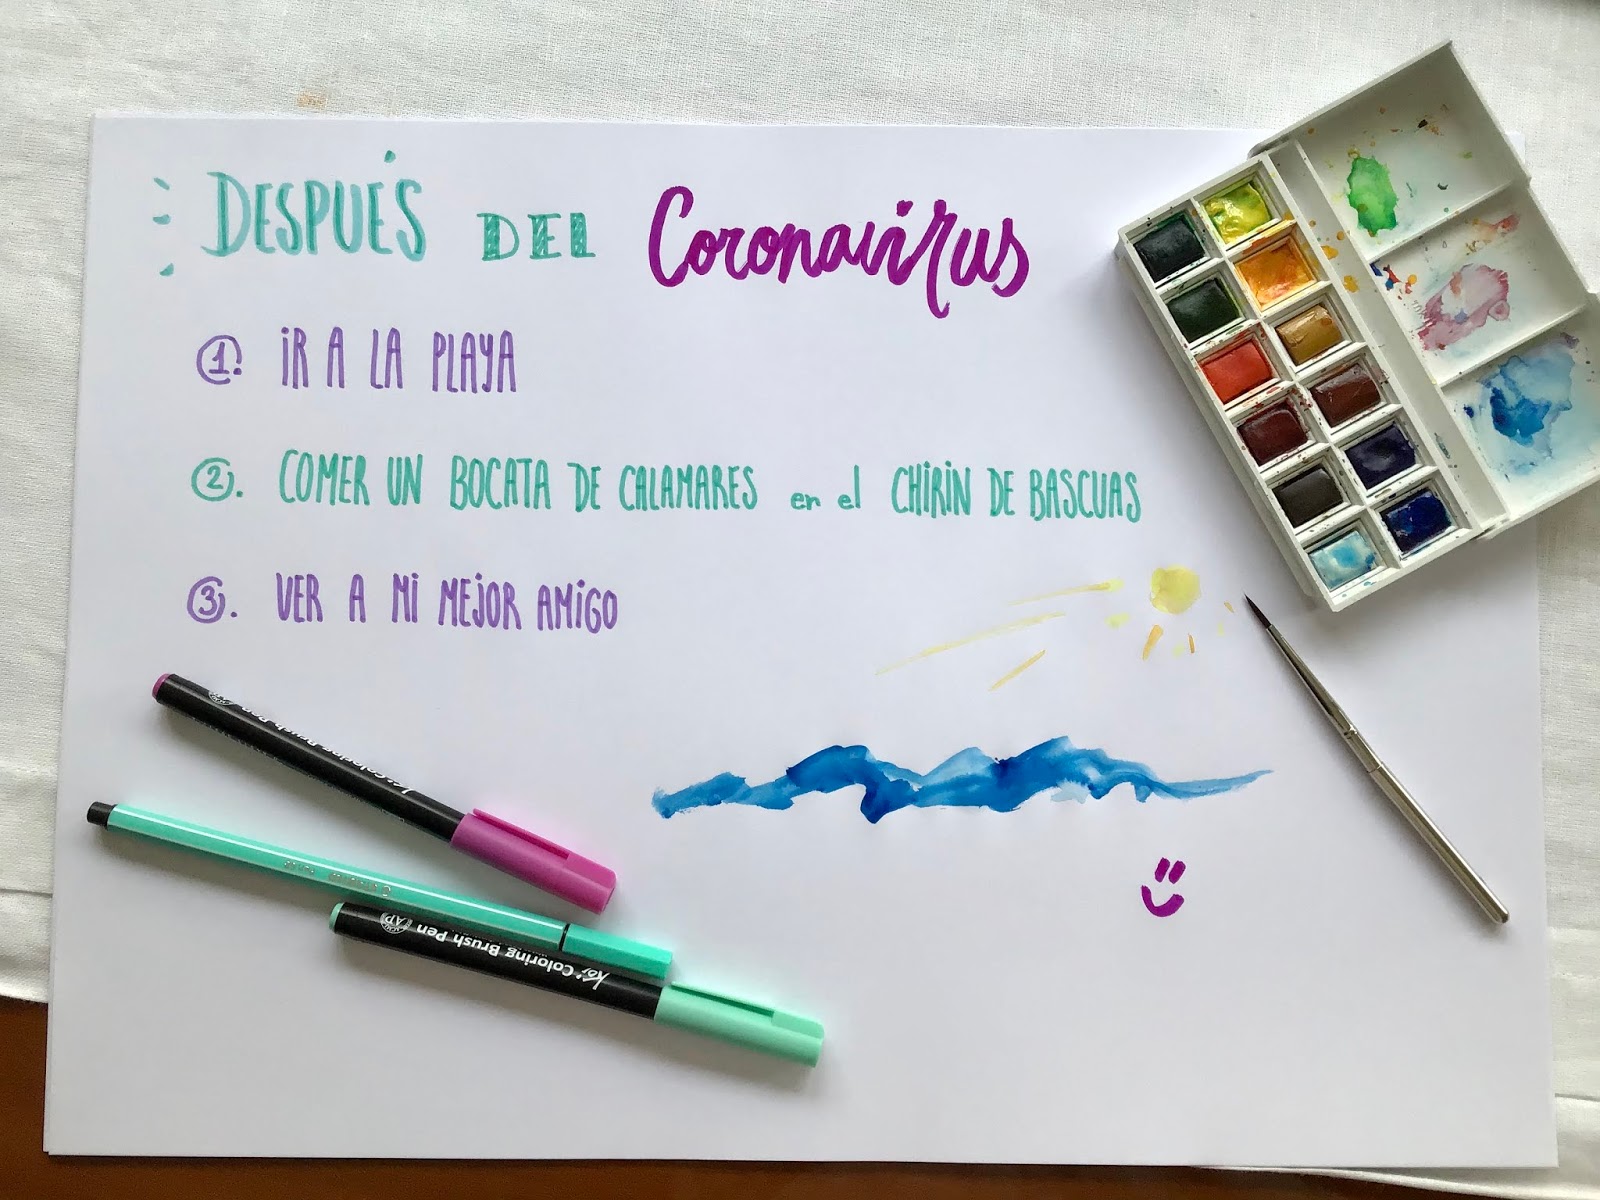 DESPUÉS DEL Coronavirus
1. iR A LA PLAYA
2. COMER UN BOCATA DE CALAMARES en el CHIRIN DE BASCUAS
3. VER A MI MEJOR AMiGO
Koi Coloring Brush Pen
Koi Coloring Brush Pen
AP